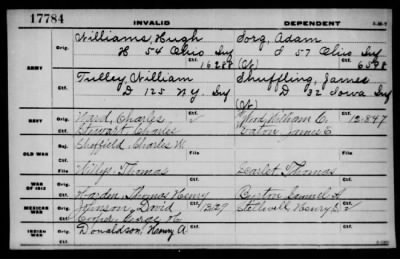 17784
INVALID DEPENDENT
Orig. Williams, Hugh Sorg, Adam
H 54 Ohio Inf I 57 Ohio Inf
Ctf. 16288 (Ct) 6598
ARMY
Orig. Tilley, William Shuffling, James
D 125 N.Y. Inf D 32 Iowa Inf
Ctf. (Ct)
NAVY Orig. Ward, Charles William C. 12847
Ctf. Stewart, Charles Eaton, James E
OLD WAR Rej. Sheffield, Charles W.
File File
WAR OF 1812 Orig. Willys, Thomas Scarlet, Thomas
Ctf. Harden, Thomas Henry Burton, Samuel A
MEXICAN WAR Orig. Johnson, David 13129 Stillwell, Henry
Ctf. Cooper, George H
INDIAN WAR Orig. Donaldson, Henry A
Ctf.